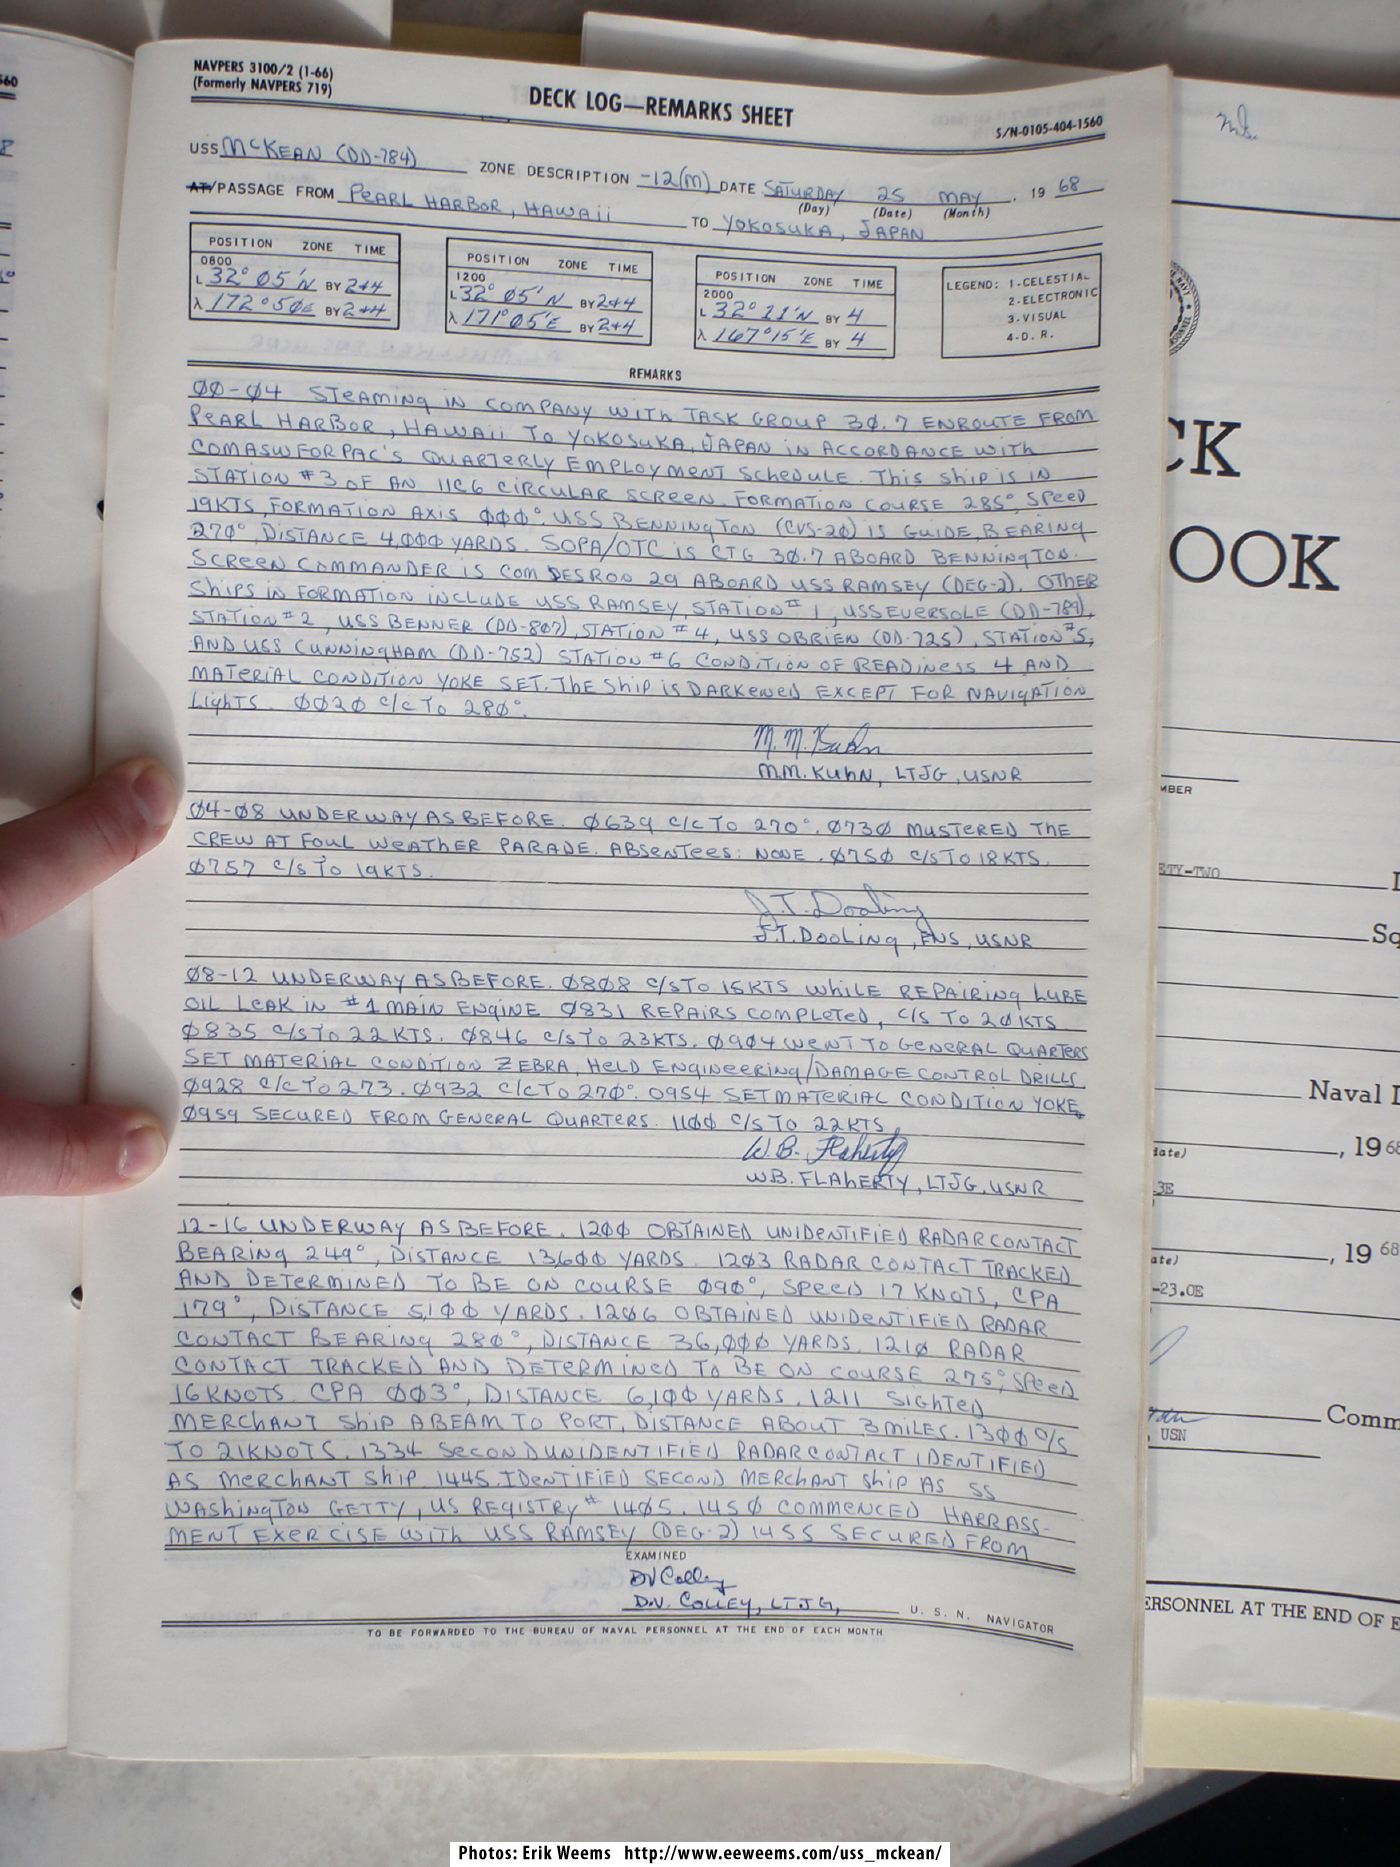 NAVPERS 3100/2 (1-66)
(Formerly NAVPERS 719)
DECK LOG—REMARKS SHEET
S/N-0105-404-1560
USS McKEAN (DD-784) ZONE DESCRIPTION -12(M) DATE SATURDAY 25 MAY, 19 68
(Day) (Date) (Month)
AT/PASSAGE FROM PEARL HARBOR, HAWAII TO YOKOSUKA, JAPAN
POSITION ZONE TIME
0800
L 32° 05'N BY 2+4
λ 172°50E BY 2+4
POSITION ZONE TIME
1200
L 32° 05'N BY 2+4
λ 171°05'E BY 2+4
POSITION ZONE TIME
2000
L 32° 11'N BY 4
λ 167°15'E BY 4
LEGEND: 1-CELESTIAL
2-ELECTRONIC
3-VISUAL
4-D. R.
REMARKS
00-04 STEAMING IN COMPANY WITH TASK GROUP 30.7 ENROUTE FROM
PEARL HARBOR, HAWAII TO YOKOSUKA, JAPAN IN ACCORDANCE WITH
COMASWFORPAC'S QUARTERLY EMPLOYMENT SCHEDULE. THIS SHIP IS IN
STATION #3 OF AN 11C6 CIRCULAR SCREEN. FORMATION COURSE 285°, SPEED
19KTS, FORMATION AXIS 000°. USS BENNINGTON (CVS-20) IS GUIDE, BEARING
270°, DISTANCE 4,000 YARDS. SOPA/OTC IS CTG 30.7 ABOARD BENNINGTON.
SCREEN COMMANDER IS COMDESRON 29 ABOARD USS RAMSEY (DEG-2). OTHER
SHIPS IN FORMATION INCLUDE USS RAMSEY, STATION #1, USS EVERSOLE (DD-789),
STATION #2, USS BENNER (DD-807), STATION #4, USS OBRIEN (DD-725), STATION #5,
AND USS CUNNINGHAM (DD-752) STATION #6 CONDITION OF READINESS 4 AND
MATERIAL CONDITION YOKE SET. THE SHIP IS DARKENED EXCEPT FOR NAVIGATION
LIGHTS. 0020 C/C TO 280°.
M. M. Kuhn
M.M. KUHN, LTJG, USNR
04-08 UNDERWAY AS BEFORE. 0639 C/C TO 270°. 0730 MUSTERED THE
CREW AT FOUL WEATHER PARADE. ABSENTEES: NONE. 0750 C/S TO 18KTS.
0757 C/S TO 19KTS.
J. T. Dooling
J.T. DOOLING, ENS, USNR
08-12 UNDERWAY AS BEFORE. 0808 C/S TO 15KTS WHILE REPAIRING LUBE
OIL LEAK IN #1 MAIN ENGINE 0831 REPAIRS COMPLETED, C/S TO 20KTS
0835 C/S TO 22KTS. 0846 C/S TO 23KTS. 0904 WENT TO GENERAL QUARTERS
SET MATERIAL CONDITION ZEBRA, HELD ENGINEERING/DAMAGE CONTROL DRILLS
0928 C/C TO 273. 0932 C/C TO 270°. 0954 SET MATERIAL CONDITION YOKE,
0959 SECURED FROM GENERAL QUARTERS. 1100 C/S TO 22KTS,
W. B. Flaherty
W.B. FLAHERTY, LTJG, USNR
12-16 UNDERWAY AS BEFORE. 1200 OBTAINED UNIDENTIFIED RADAR CONTACT
BEARING 249°, DISTANCE 13,600 YARDS. 1203 RADAR CONTACT TRACKED
AND DETERMINED TO BE ON COURSE 090°, SPEED 17 KNOTS, CPA
179°, DISTANCE 5,100 YARDS. 1206 OBTAINED UNIDENTIFIED RADAR
CONTACT BEARING 280°, DISTANCE 36,000 YARDS. 1210 RADAR
CONTACT TRACKED AND DETERMINED TO BE ON COURSE 275°, SPEED
16 KNOTS CPA 003°, DISTANCE 6,100 YARDS. 1211 SIGHTED
MERCHANT SHIP ABEAM TO PORT, DISTANCE ABOUT 3 MILES. 1300 C/S
TO 21 KNOTS. 1334 SECOND UNIDENTIFIED RADAR CONTACT IDENTIFIED
AS MERCHANT SHIP. 1445. IDENTIFIED SECOND MERCHANT SHIP AS SS
WASHINGTON GETTY, US REGISTRY # 1405. 1450 COMMENCED HARRASS-
MENT EXERCISE WITH USS RAMSEY (DEG-2) 1455 SECURED FROM
EXAMINED
DV Colley
D.V. COLLEY, LTJG, U. S. N. NAVIGATOR
TO BE FORWARDED TO THE BUREAU OF NAVAL PERSONNEL AT THE END OF EACH MONTH
560
CK
OOK
MBER
ETY-TWO
Sq
Naval D
date)
, 19 68
-3E
ate)
, 19 68
-23.0E
USN
Comm
ERSONNEL AT THE END OF E
Photos: Erik Weems http://www.eeweems.com/uss_mckean/